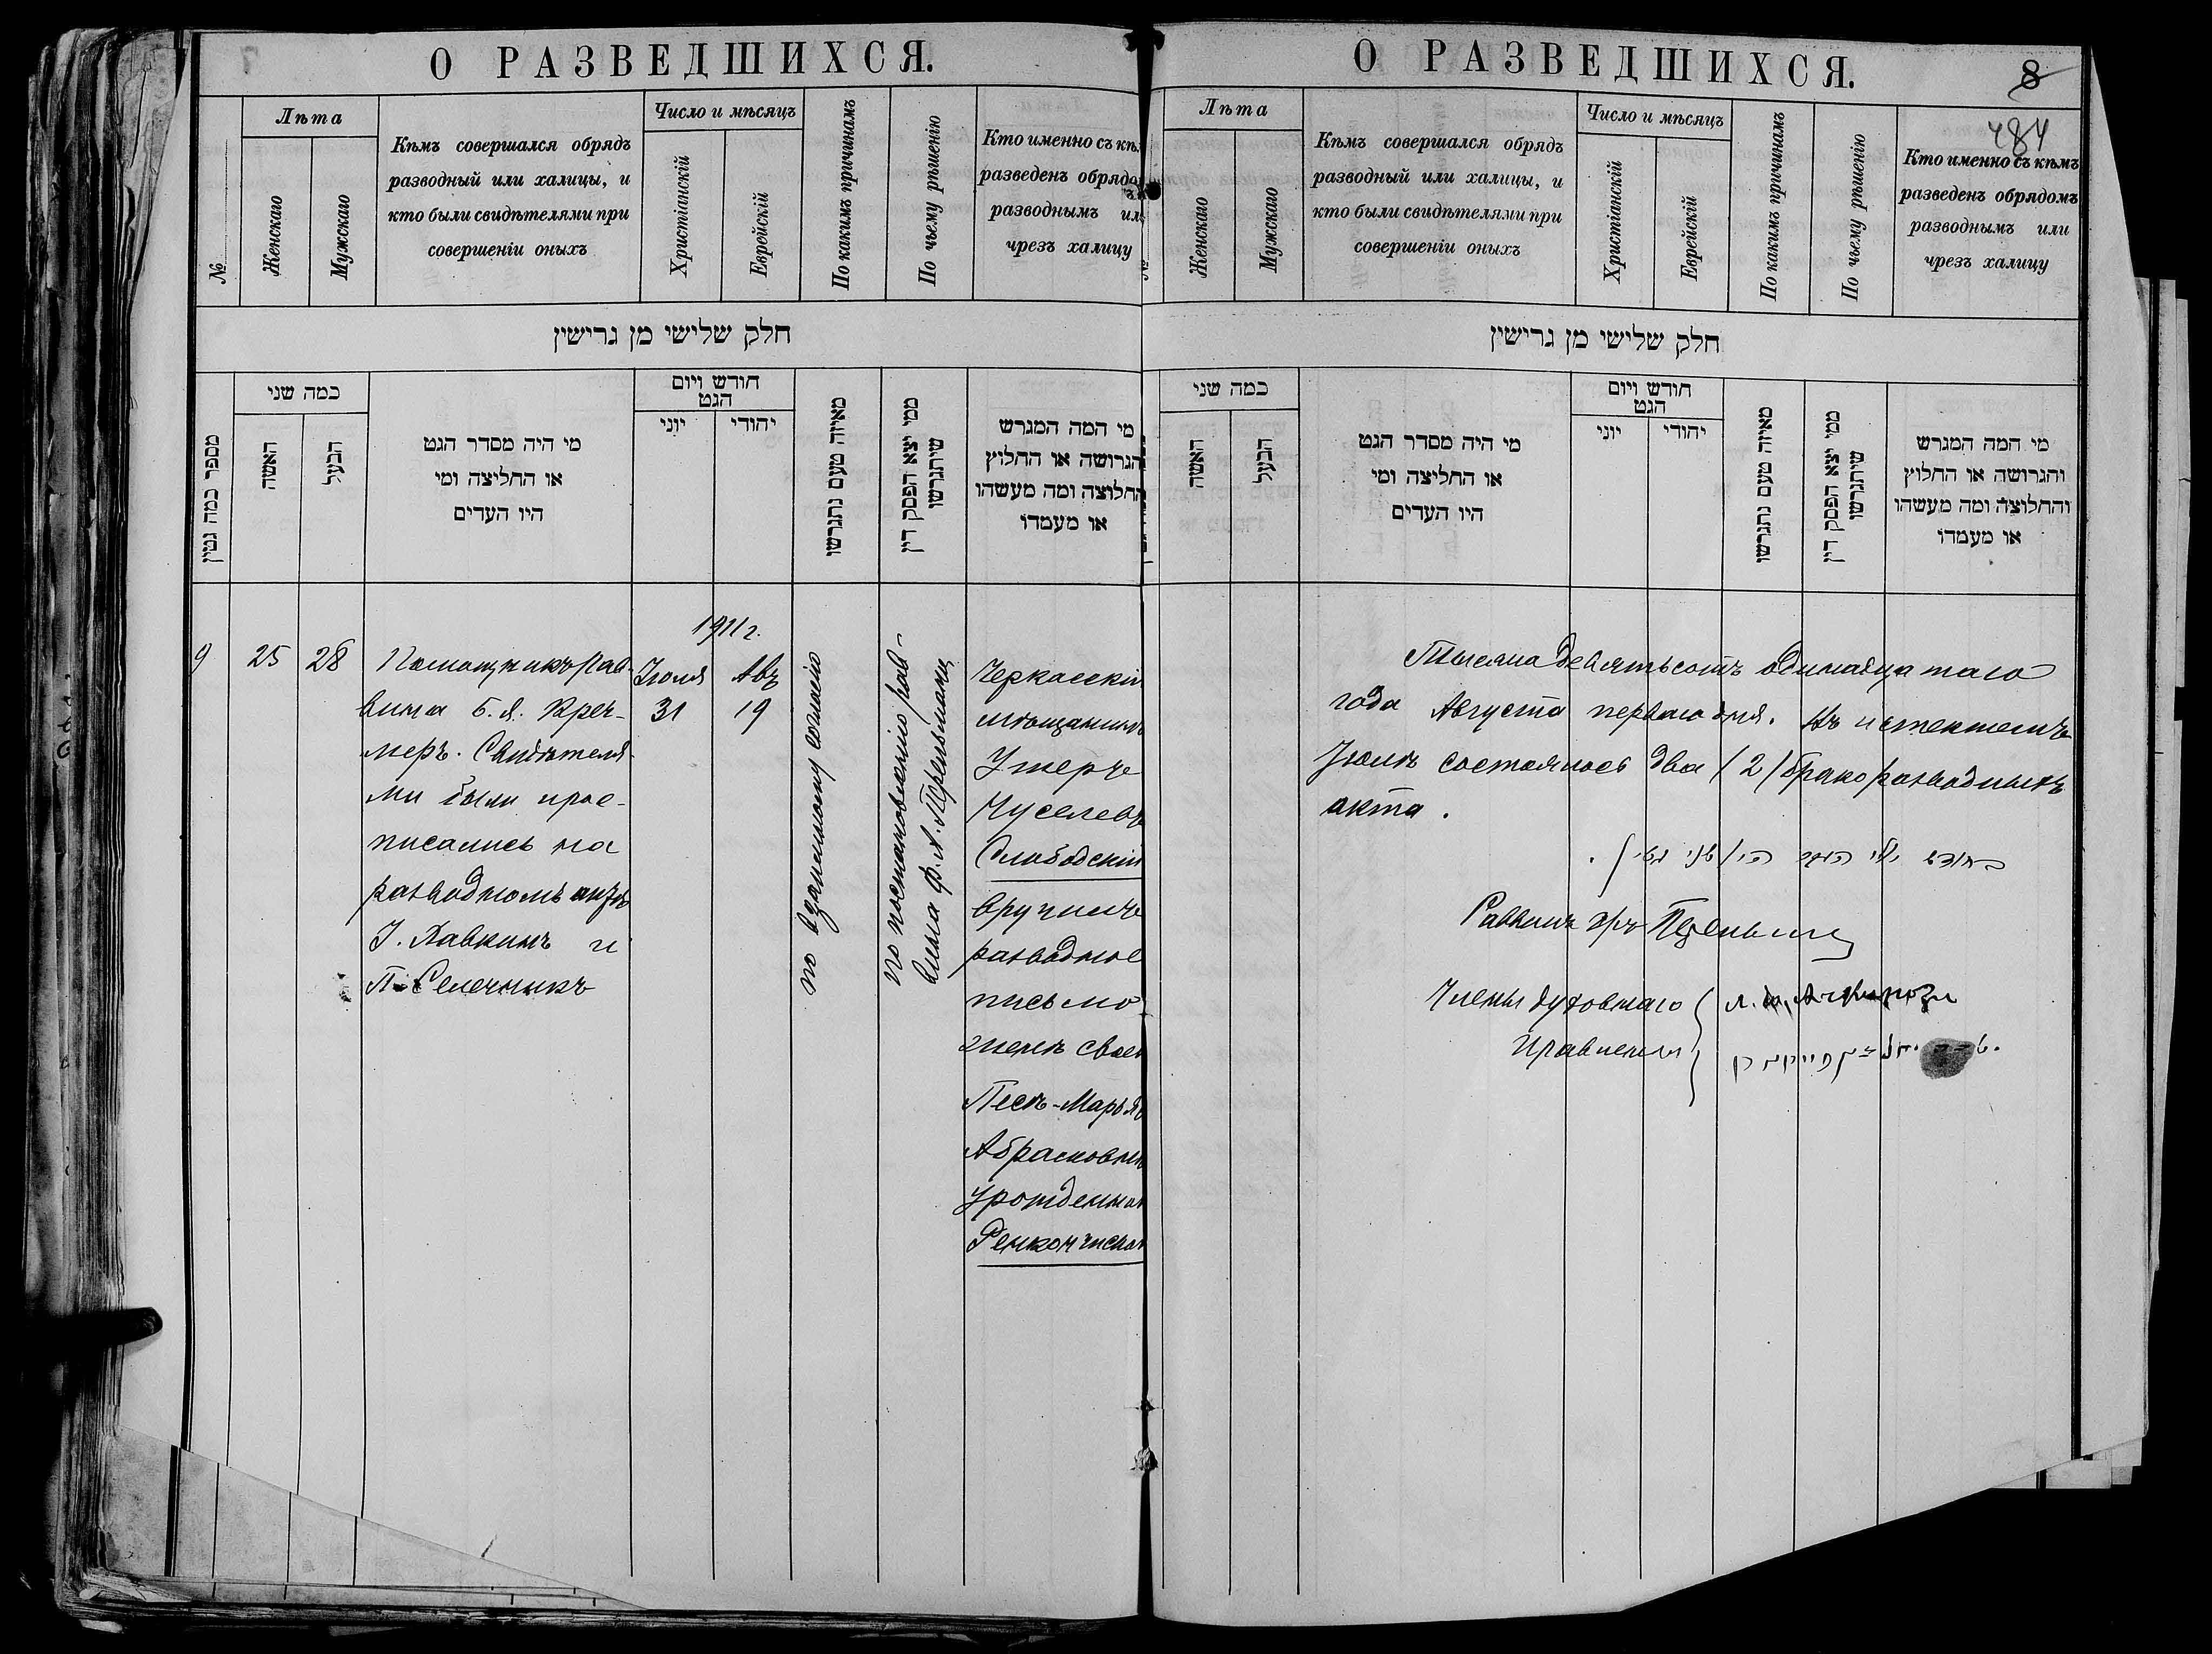 О РАЗВЕДШИХСЯ.
№
Лѣта
Женскаго
Мужскаго
Кѣмъ совершался обрядъ
разводный или халицы, и
кто были свидѣтелями при
совершеніи оныхъ
Число и мѣсяцъ
Христіанскій
Еврейскій
По какимъ причинамъ
По чьему рѣшенію
Кто именно съ кѣ
разведенъ обрядо
разводнымъ ил
чрезъ халицу
חלק שלישי מן גרישין
מספר כמה גטין
כמה שני
האשה
הבעל
מי היה מסדר הגט
או החליצה ומי
היו העדים
חודש ויום
הגט
יוני
יהודי
מאיזה טעם נתגרשו
ממי יצא הפסק דין
שיתגרשו
מי המה המגרש
הגרושה או החלוץ
החלוצה ומה מעשהו
או מעמדו
9
25
28
Помощникъ рав-
вина Б. Я. Креч-
меръ. Свидѣтеля-
ми были и рос-
писались на
разводномъ актѣ
І. Хавкинъ и
П. Селечникъ
1911 г.
Іюля
31
Авъ
19
по взаимному согласію
по постановленію рав-
вина Ф. А.
Черкасскій
мѣщанинъ
Ушеръ
Слободскій
вручилъ
разводное
письмо
женѣ своей
Песѣ-Марьѣ
Абрамовнѣ
урожденной
О РАЗВЕДШИХСЯ.
8
484
Лѣта
Женскаго
Мужскаго
Кѣмъ совершался обрядъ
разводный или халицы, и
кто были свидѣтелями при
совершеніи оныхъ
Число и мѣсяцъ
Христіанскій
Еврейскій
По какимъ причинамъ
По чьему рѣшенію
Кто именно съ кѣмъ
разведенъ обрядомъ
разводнымъ или
чрезъ халицу
חלק שלישי מן גרישין
כמה שני
האשה
הבעל
מי היה מסדר הגט
או החליצה ומי
היו העדים
חודש ויום
הגט
יוני
יהודי
מאיזה טעם נתגרשו
ממי יצא הפסק דין
שיתגרשו
מי המה המגרש
והגרושה או החלוץ
והחלוצה ומה מעשהו
או מעמדו
Тысяча девятьсотъ одинадцатаго
года Августа перваго дня. Въ истекшемъ
Іюлѣ состоялось два (2) бракоразводныхъ
акта.
Раввинъ
Члены духовнаго
Правленія